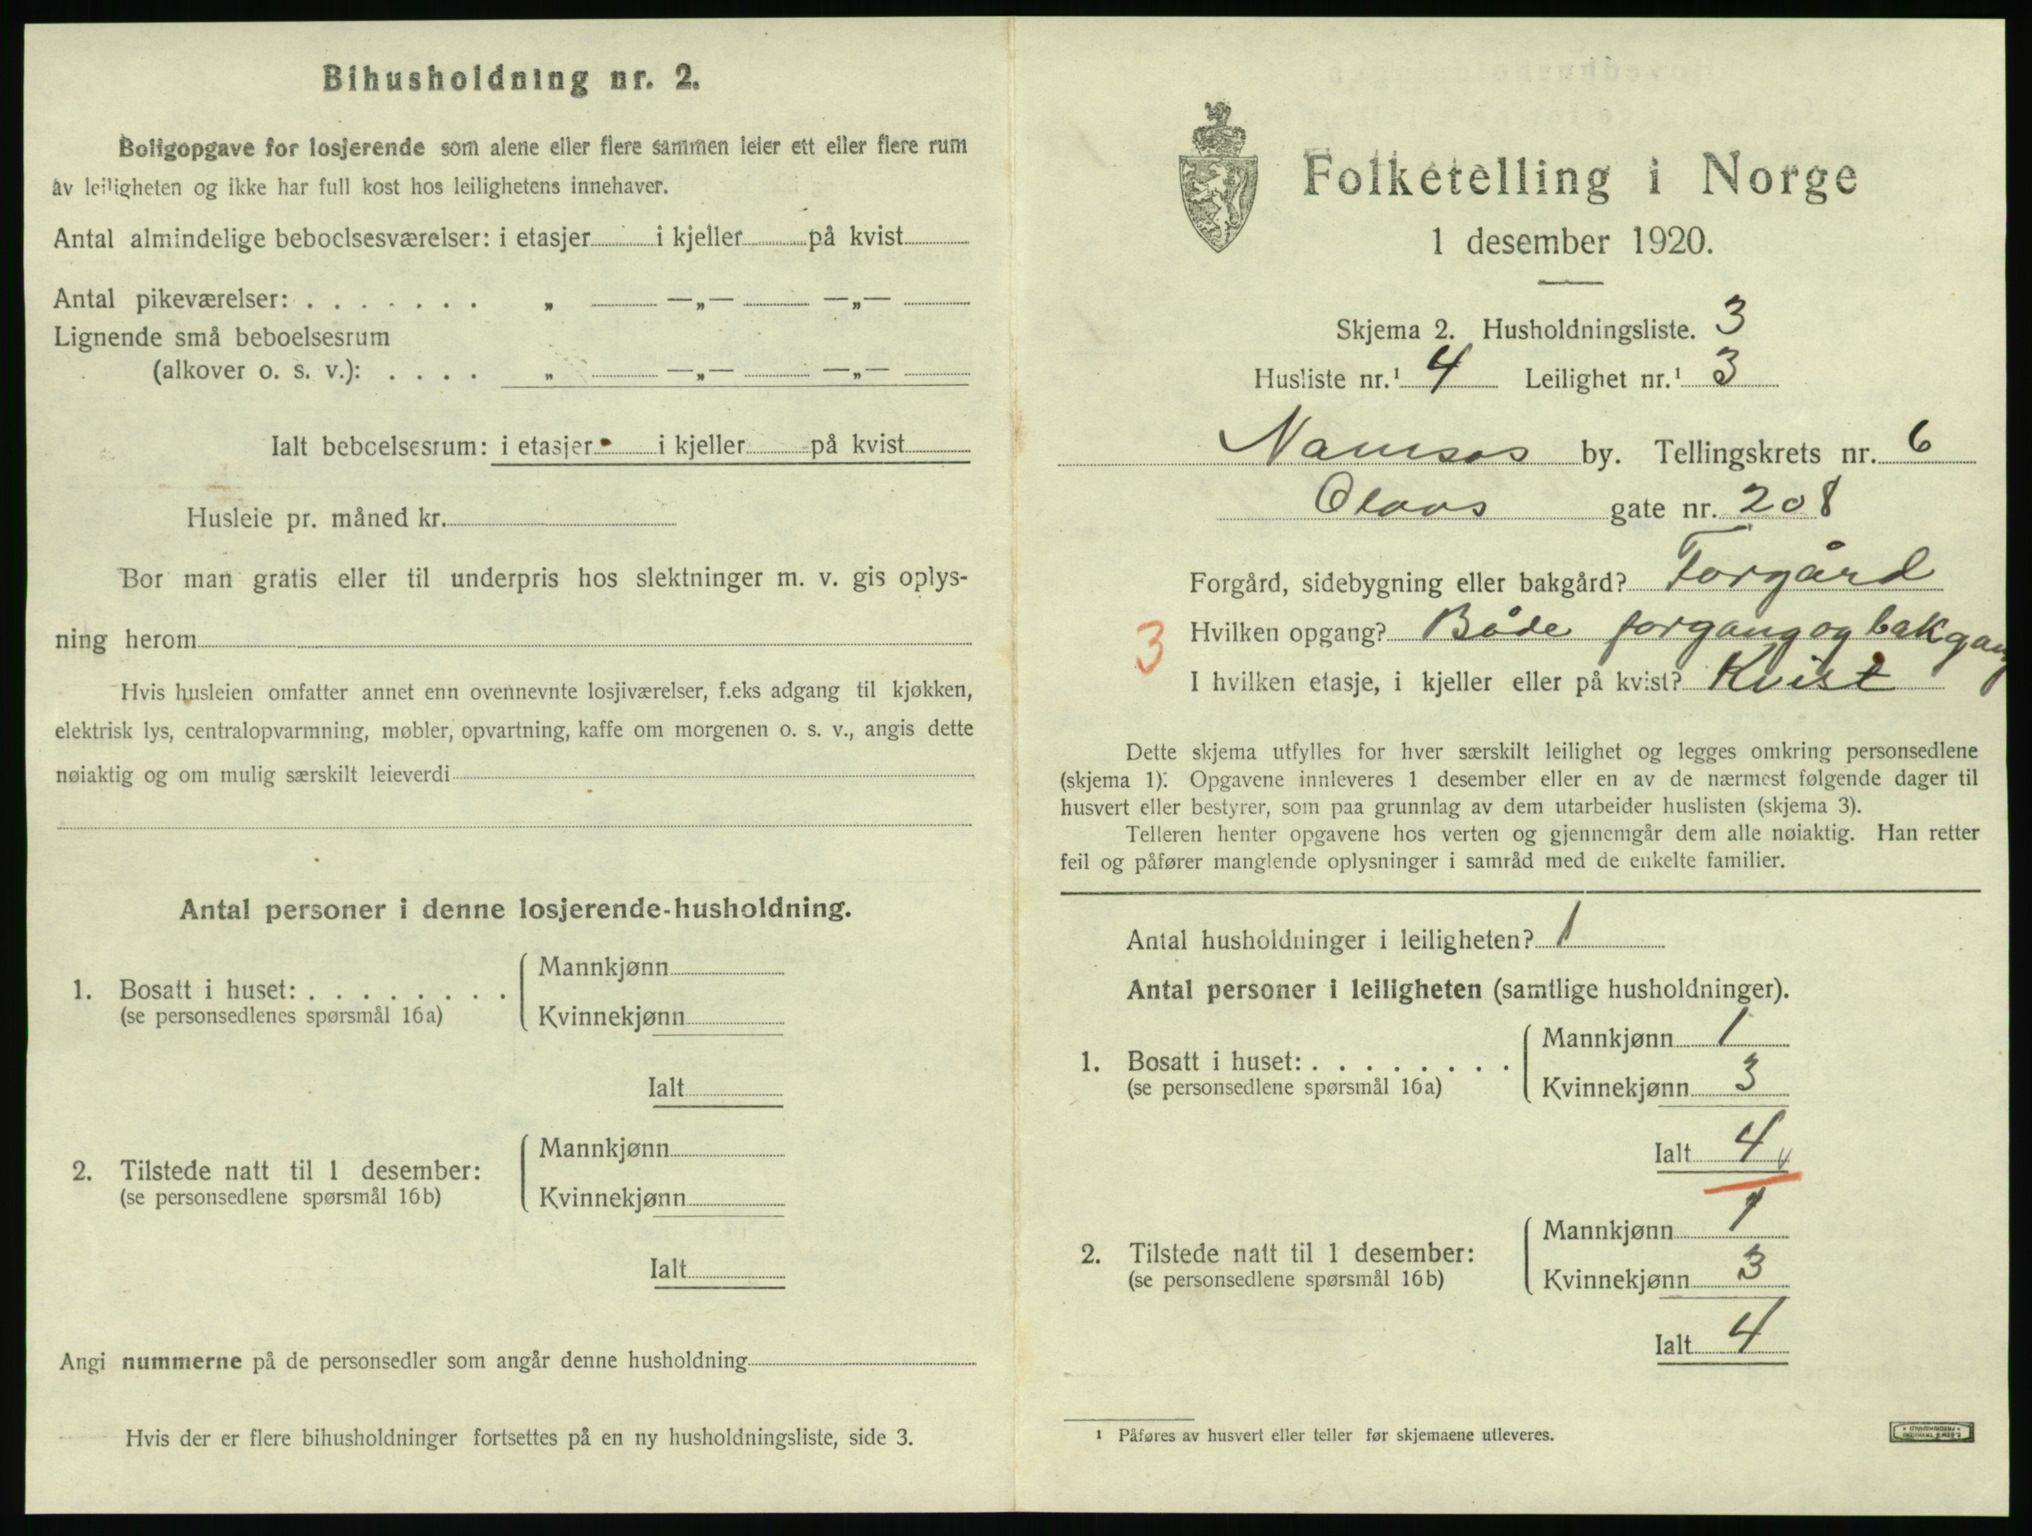 Bihusholdning nr. 2.
Boligopgave for losjerende som alene eller flere sammen leier ett eller flere rum
av leiligheten og ikke har full kost hos leilighetens innehaver.
Antal almindelige beboelsesværelser: i etasjer i kjeller på kvist
Antal pikeværelser: . . . . . . . „ —„— —„—
Lignende små beboelsesrum
(alkover o. s. v.): . . . . „ —„— —„—
Ialt beboelsesrum: i etasjer i kjeller på kvist
Husleie pr. måned kr.
Bor man gratis eller til underpris hos slektninger m. v. gis oplys-
ning herom
Hvis husleien omfatter annet enn ovennevnte losjiværelser, f.eks adgang til kjøkken,
elektrisk lys, centralopvarmning, møbler, opvartning, kaffe om morgenen o. s. v., angis dette
nøiaktig og om mulig særskilt leieverdi
Antal personer i denne losjerende-husholdning.
1. Bosatt i huset: . . . . . . . .
(se personsedlenes spørsmål 16a)
Mannkjønn
Kvinnekjønn
Ialt
2. Tilstede natt til 1 desember:
(se personsedlene spørsmål 16b)
Mannkjønn
Kvinnekjønn
Ialt
Angi nummerne på de personsedler som angår denne husholdning
Hvis der er flere bihusholdninger fortsettes på en ny husholdningsliste, side 3.
Folketelling i Norge
1 desember 1920.
Skjema 2. Husholdningsliste. 3
Husliste nr.¹ 4 Leilighet nr.¹ 3
Namsos by. Tellingskrets nr. 6
Olavs gate nr. 208
Forgård, sidebygning eller bakgård? Forgård
3 Hvilken opgang? Både forgang og bakgang
I hvilken etasje, i kjeller eller på kvist? Kvist
Dette skjema utfylles for hver særskilt leilighet og legges omkring personsedlene
(skjema 1). Opgavene innleveres 1 desember eller en av de nærmest følgende dager til
husvert eller bestyrer, som paa grunnlag av dem utarbeider huslisten (skjema 3).
Telleren henter opgavene hos verten og gjennemgår dem alle nøiaktig. Han retter
feil og påfører manglende oplysninger i samråd med de enkelte familier.
Antal husholdninger i leiligheten? 1
Antal personer i leiligheten (samtlige husholdninger).
1. Bosatt i huset: . . . . . . . .
(se personsedlene spørsmål 16a)
Mannkjønn 1
Kvinnekjønn 3
Ialt 4
2. Tilstede natt til 1 desember:
(se personsedlene spørsmål 16b)
Mannkjønn 1
Kvinnekjønn 3
Ialt 4
¹ Påføres av husvert eller teller før skjemaene utleveres.